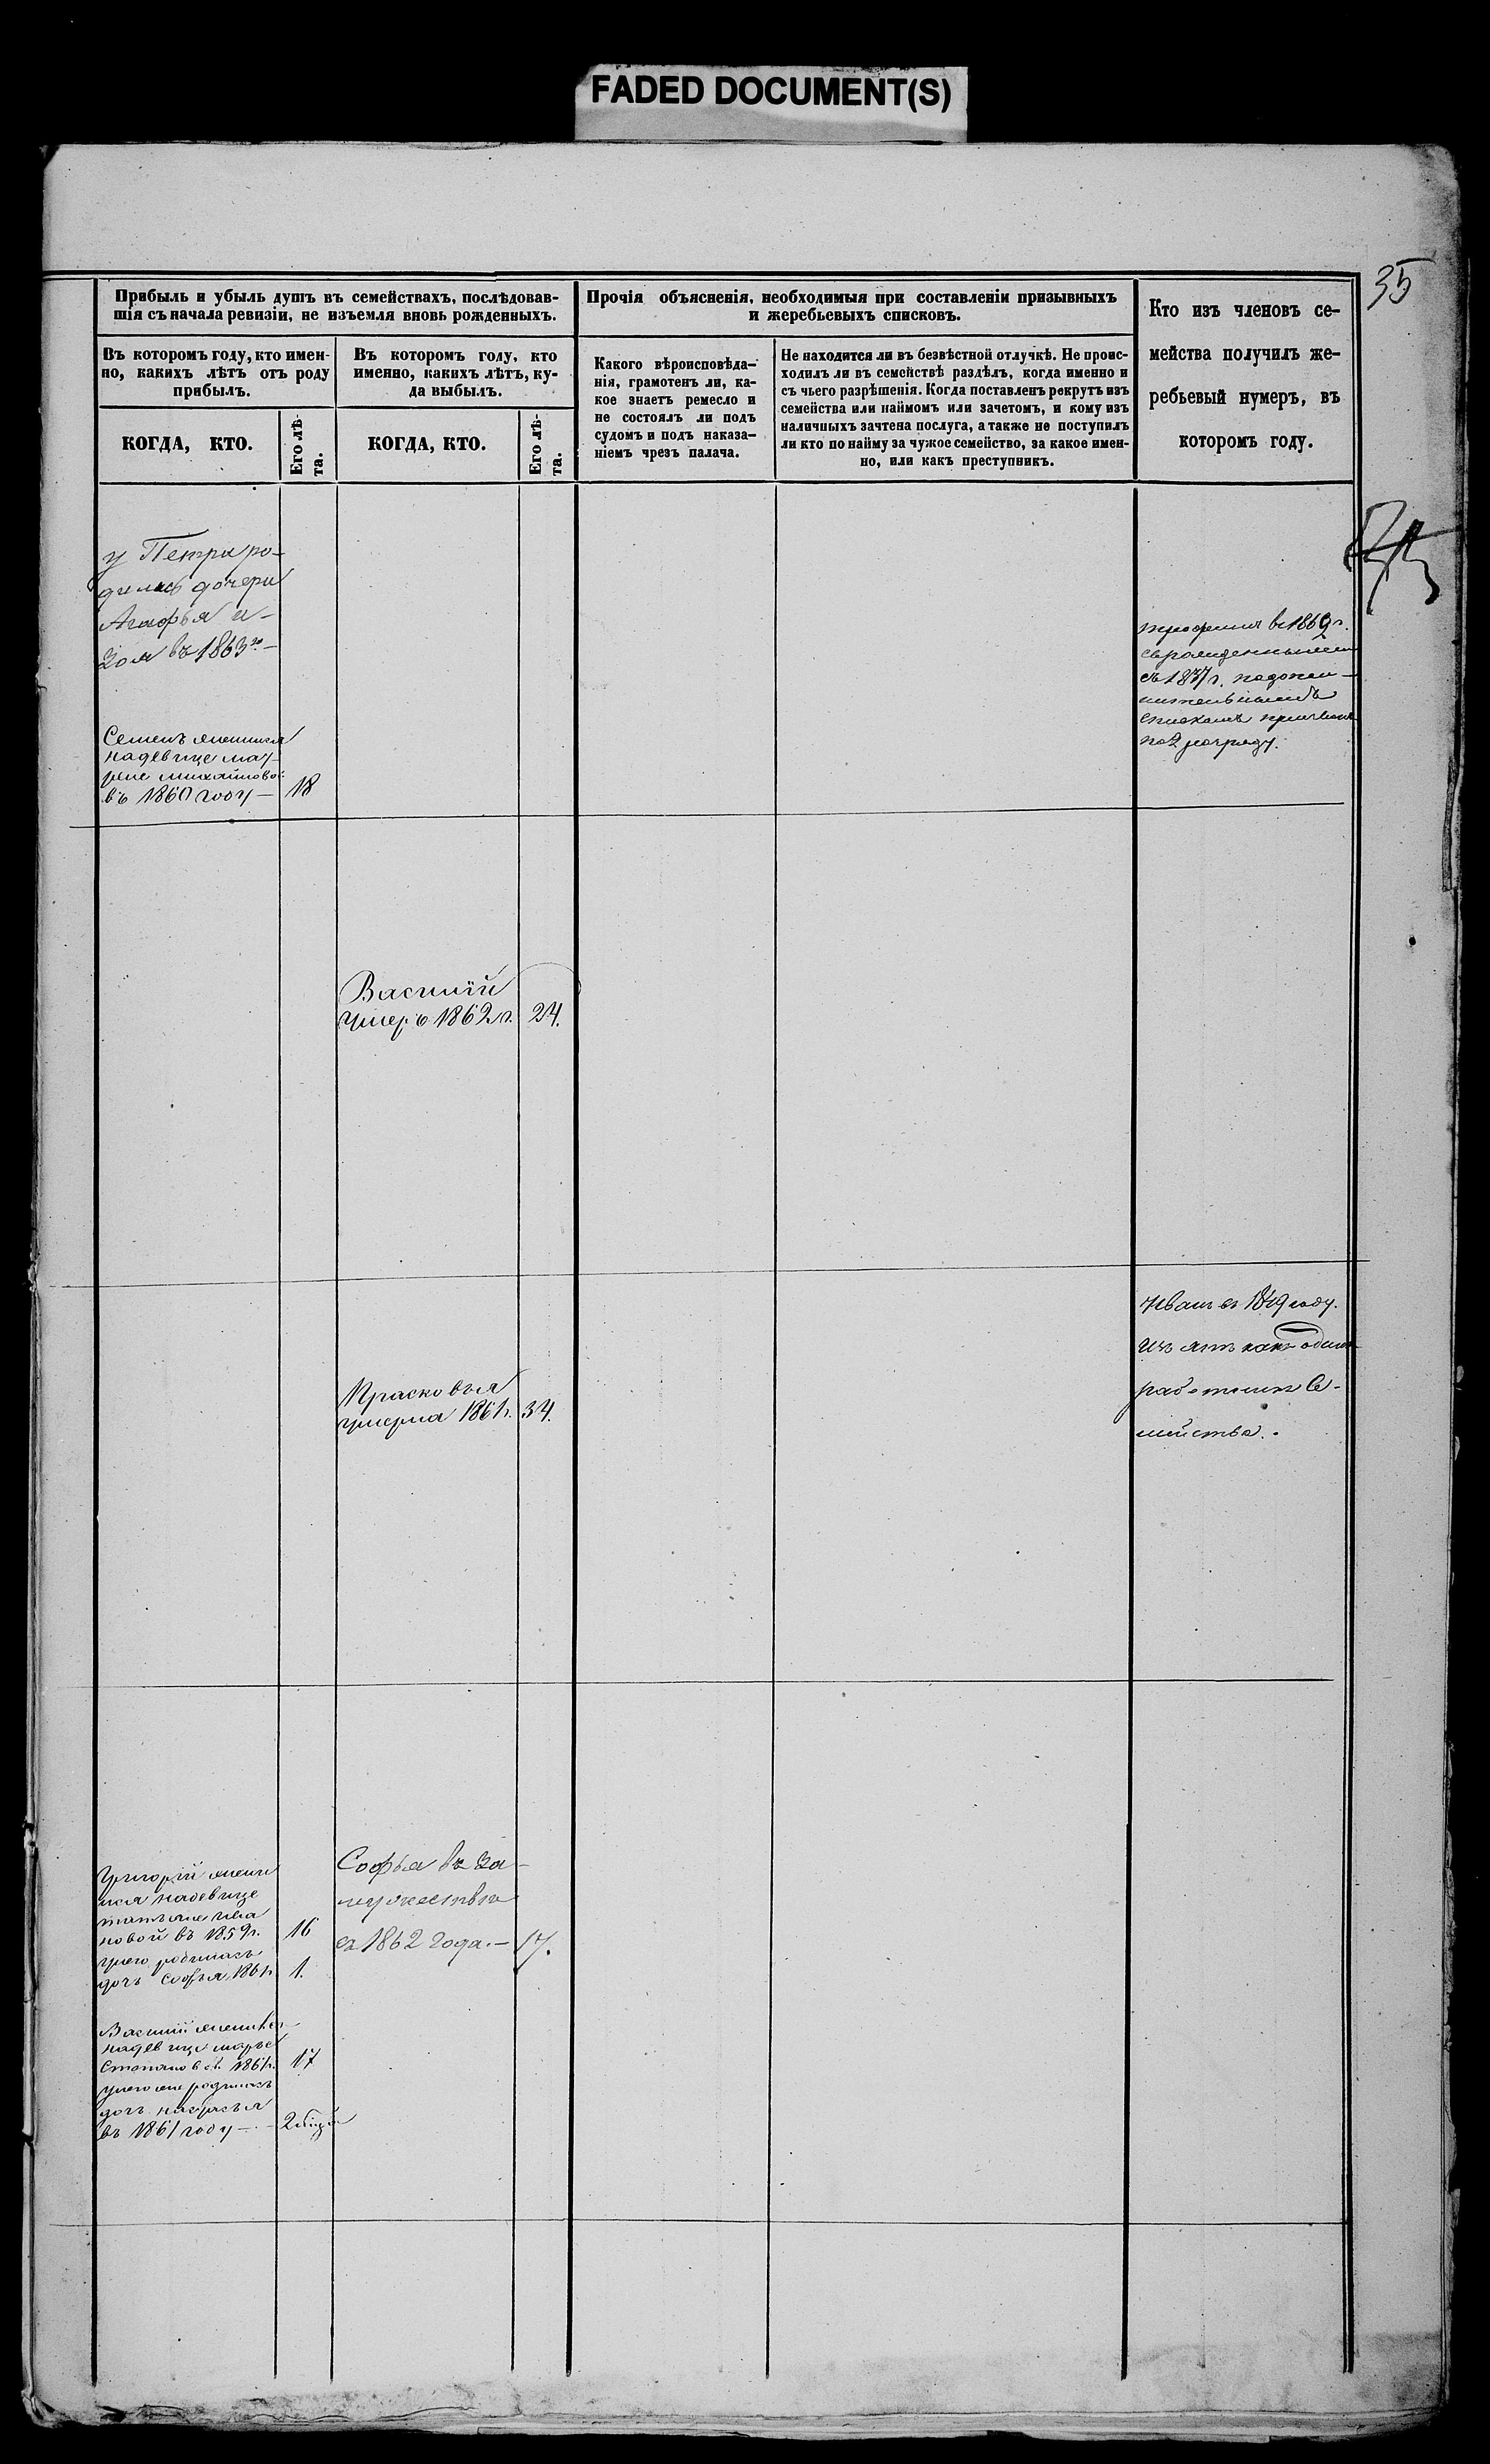 FADED DOCUMENT(S)
35
Прибыль и убыль душъ въ семействахъ, послѣдовав-
шія съ начала ревизіи, не изъемля вновь рожденныхъ.
Прочія объясненія, необходимыя при составленіи призывныхъ
и жеребьевыхъ списковъ.
Кто изъ членовъ се-
мейства получилъ же-
ребьевый нумеръ, въ
которомъ году.
Въ которомъ году, кто имен-
но, какихъ лѣтъ отъ роду
прибылъ.
Въ которомъ году, кто
именно, какихъ лѣтъ, ку-
да выбылъ.
Какого вѣроисповѣда-
нія, грамотенъ ли, ка-
кое знаетъ ремесло и
не состоялъ ли подъ
судомъ и подъ наказа-
ніемъ чрезъ палача.
Не находится ли въ безвѣстной отлучкѣ. Не проис-
ходилъ ли въ семействѣ раздѣлъ, когда именно и
съ чьего разрѣшенія. Когда поставленъ рекрутъ изъ
семейства или наймомъ или зачетомъ, и кому изъ
наличныхъ зачтена послуга, а также не поступилъ
ли кто по найму за чужое семейство, за какое имен-
но, или какъ преступникъ.
КОГДА, КТО.
Его лѣ-
та.
КОГДА, КТО.
Его лѣ-
та.
у Петра ро-
дилис дочери
Агафья и
Зоя въ 1863 го
Семенъ женился
на девице Мав-
ре Михайловой
въ 1860 году — 18
въ 1869 г.
съ 1877 г.
по 2 разряду.
Василий
умеръ 1862 г. 24.
Иванъ въ году.
изъятъ какъ одинъ
работникъ Се-
мейства.
Прасковья
умерла 1861 г. 34.
Григорій жени
лся на девице
Татьяне Ива
новой въ 1859 г. 16
у него родилась
дочь Софья 1861 г. 1.
Софья въ За
мужестве
съ 1862 Года. — 17.
Василій женился
на девице Марье
Степановой 1861 г. 17
у него же родилась
дочь
въ 1861 году —